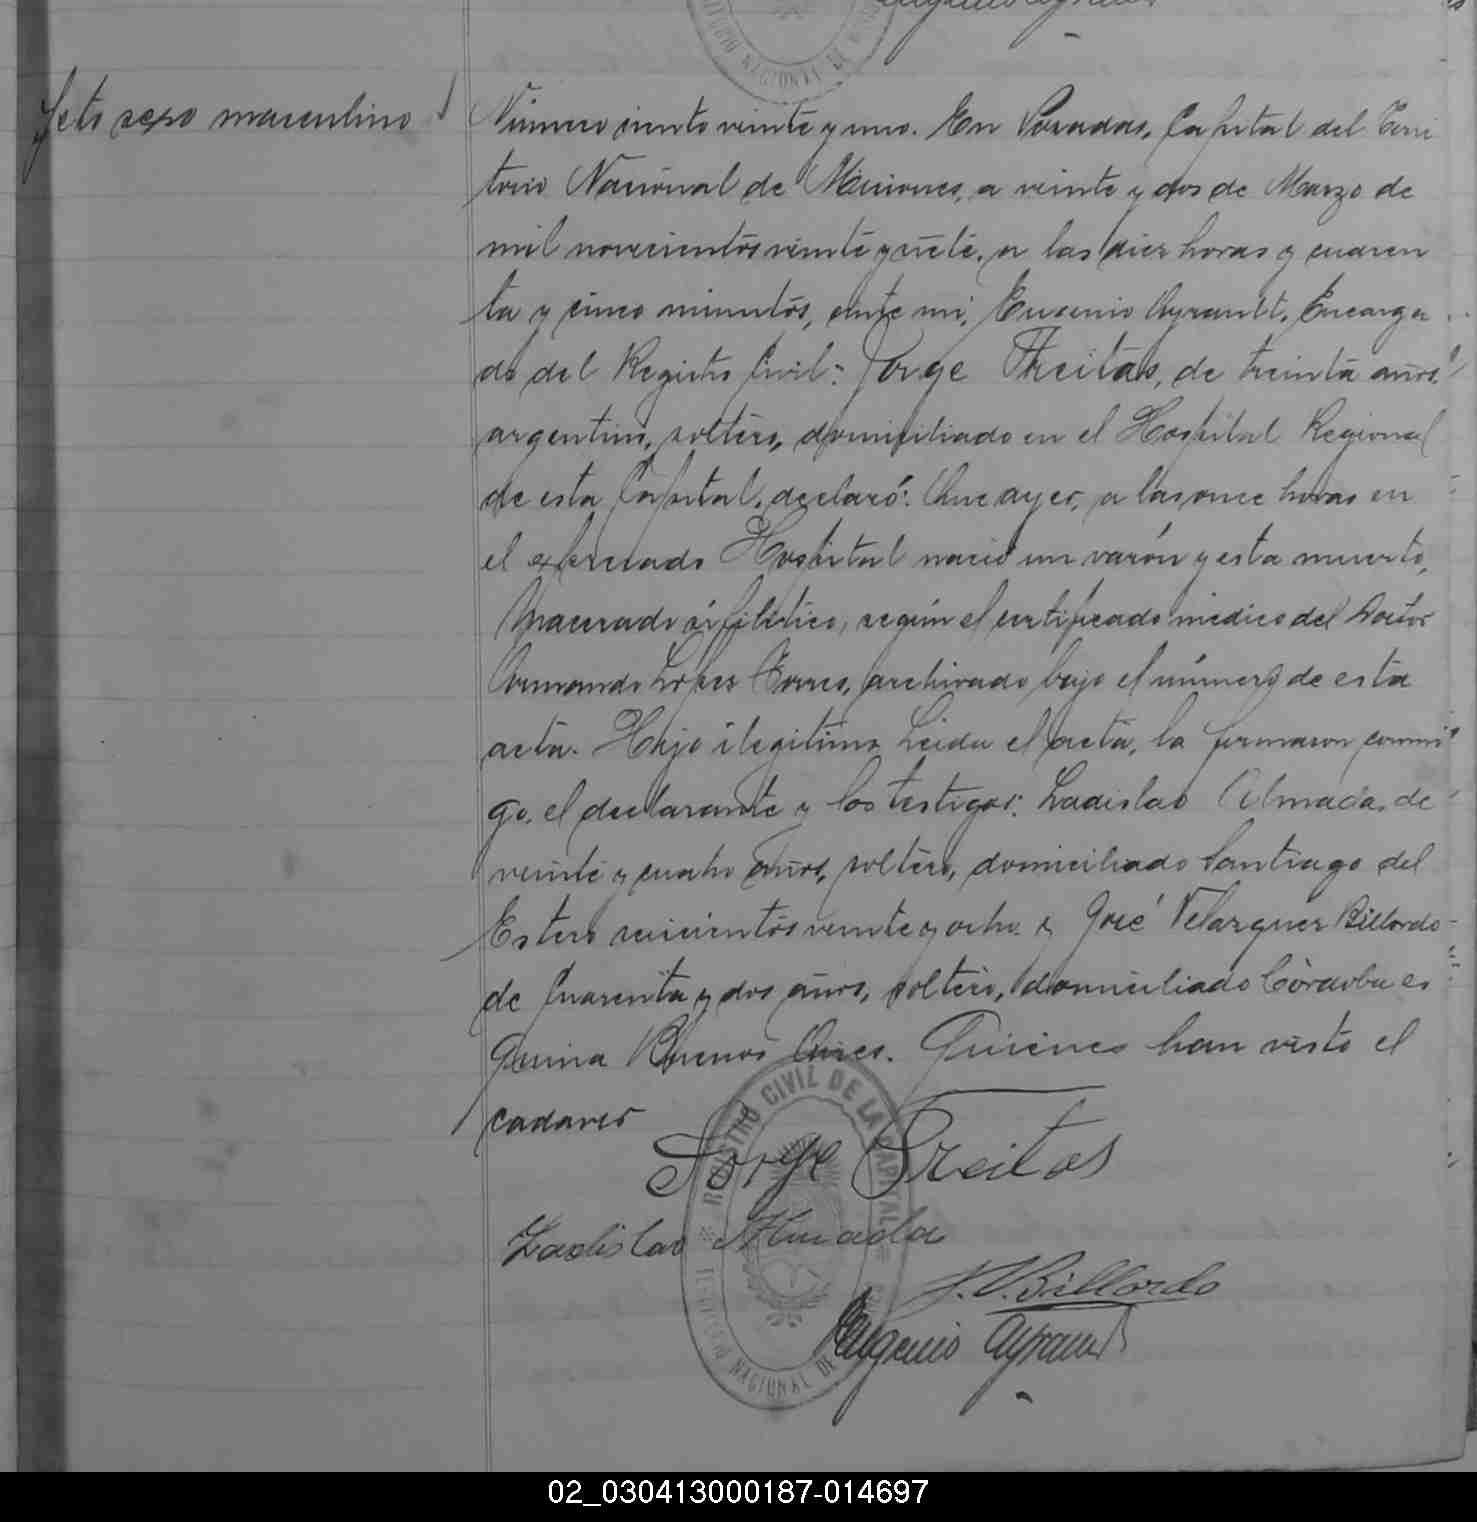 Feto sexo masculino
Número ciento veinte y uno. En Posadas, Capital del Terri
torio Nacional de Misiones, a veinte y dos de Marzo de
mil novecientos veinte y siete, a las diez horas y cuaren
ta y cinco minutos, ante mi, Eugenio Ayrault, Encarga
do del Registro Civil: Jorge Freitas, de treinta años,
argentino, soltero, domiciliado en el Hospital Regional
de esta Capital, declaró: Que ayer, a las once horas en
el expresado Hospital nació un varón y esta muerto,
Macerado sifilitico, según el certificado médico del Doctor
Armando López Torres, archivado bajo el número de esta
acta. Hijo ilegitimo Leida el acta, la firmaron conmi
go, el declarante y los testigos: Ladislao Almada, de
veinte y cuatro años, soltero, domiciliado Santiago del
Estero seiscientos veinte y ocho y José Velazquez Billordo
de cuarenta y dos años, soltero, domiciliado Córdoba es
quina Buenos Aires. Quienes han visto el
cadaver
Jorge Freitas
Ladislao Almada
J. V. Billordo
Eugenio Ayrault
REGISTRO CIVIL DE LA CAPITAL
NACIONAL DE
02_030413000187-014697